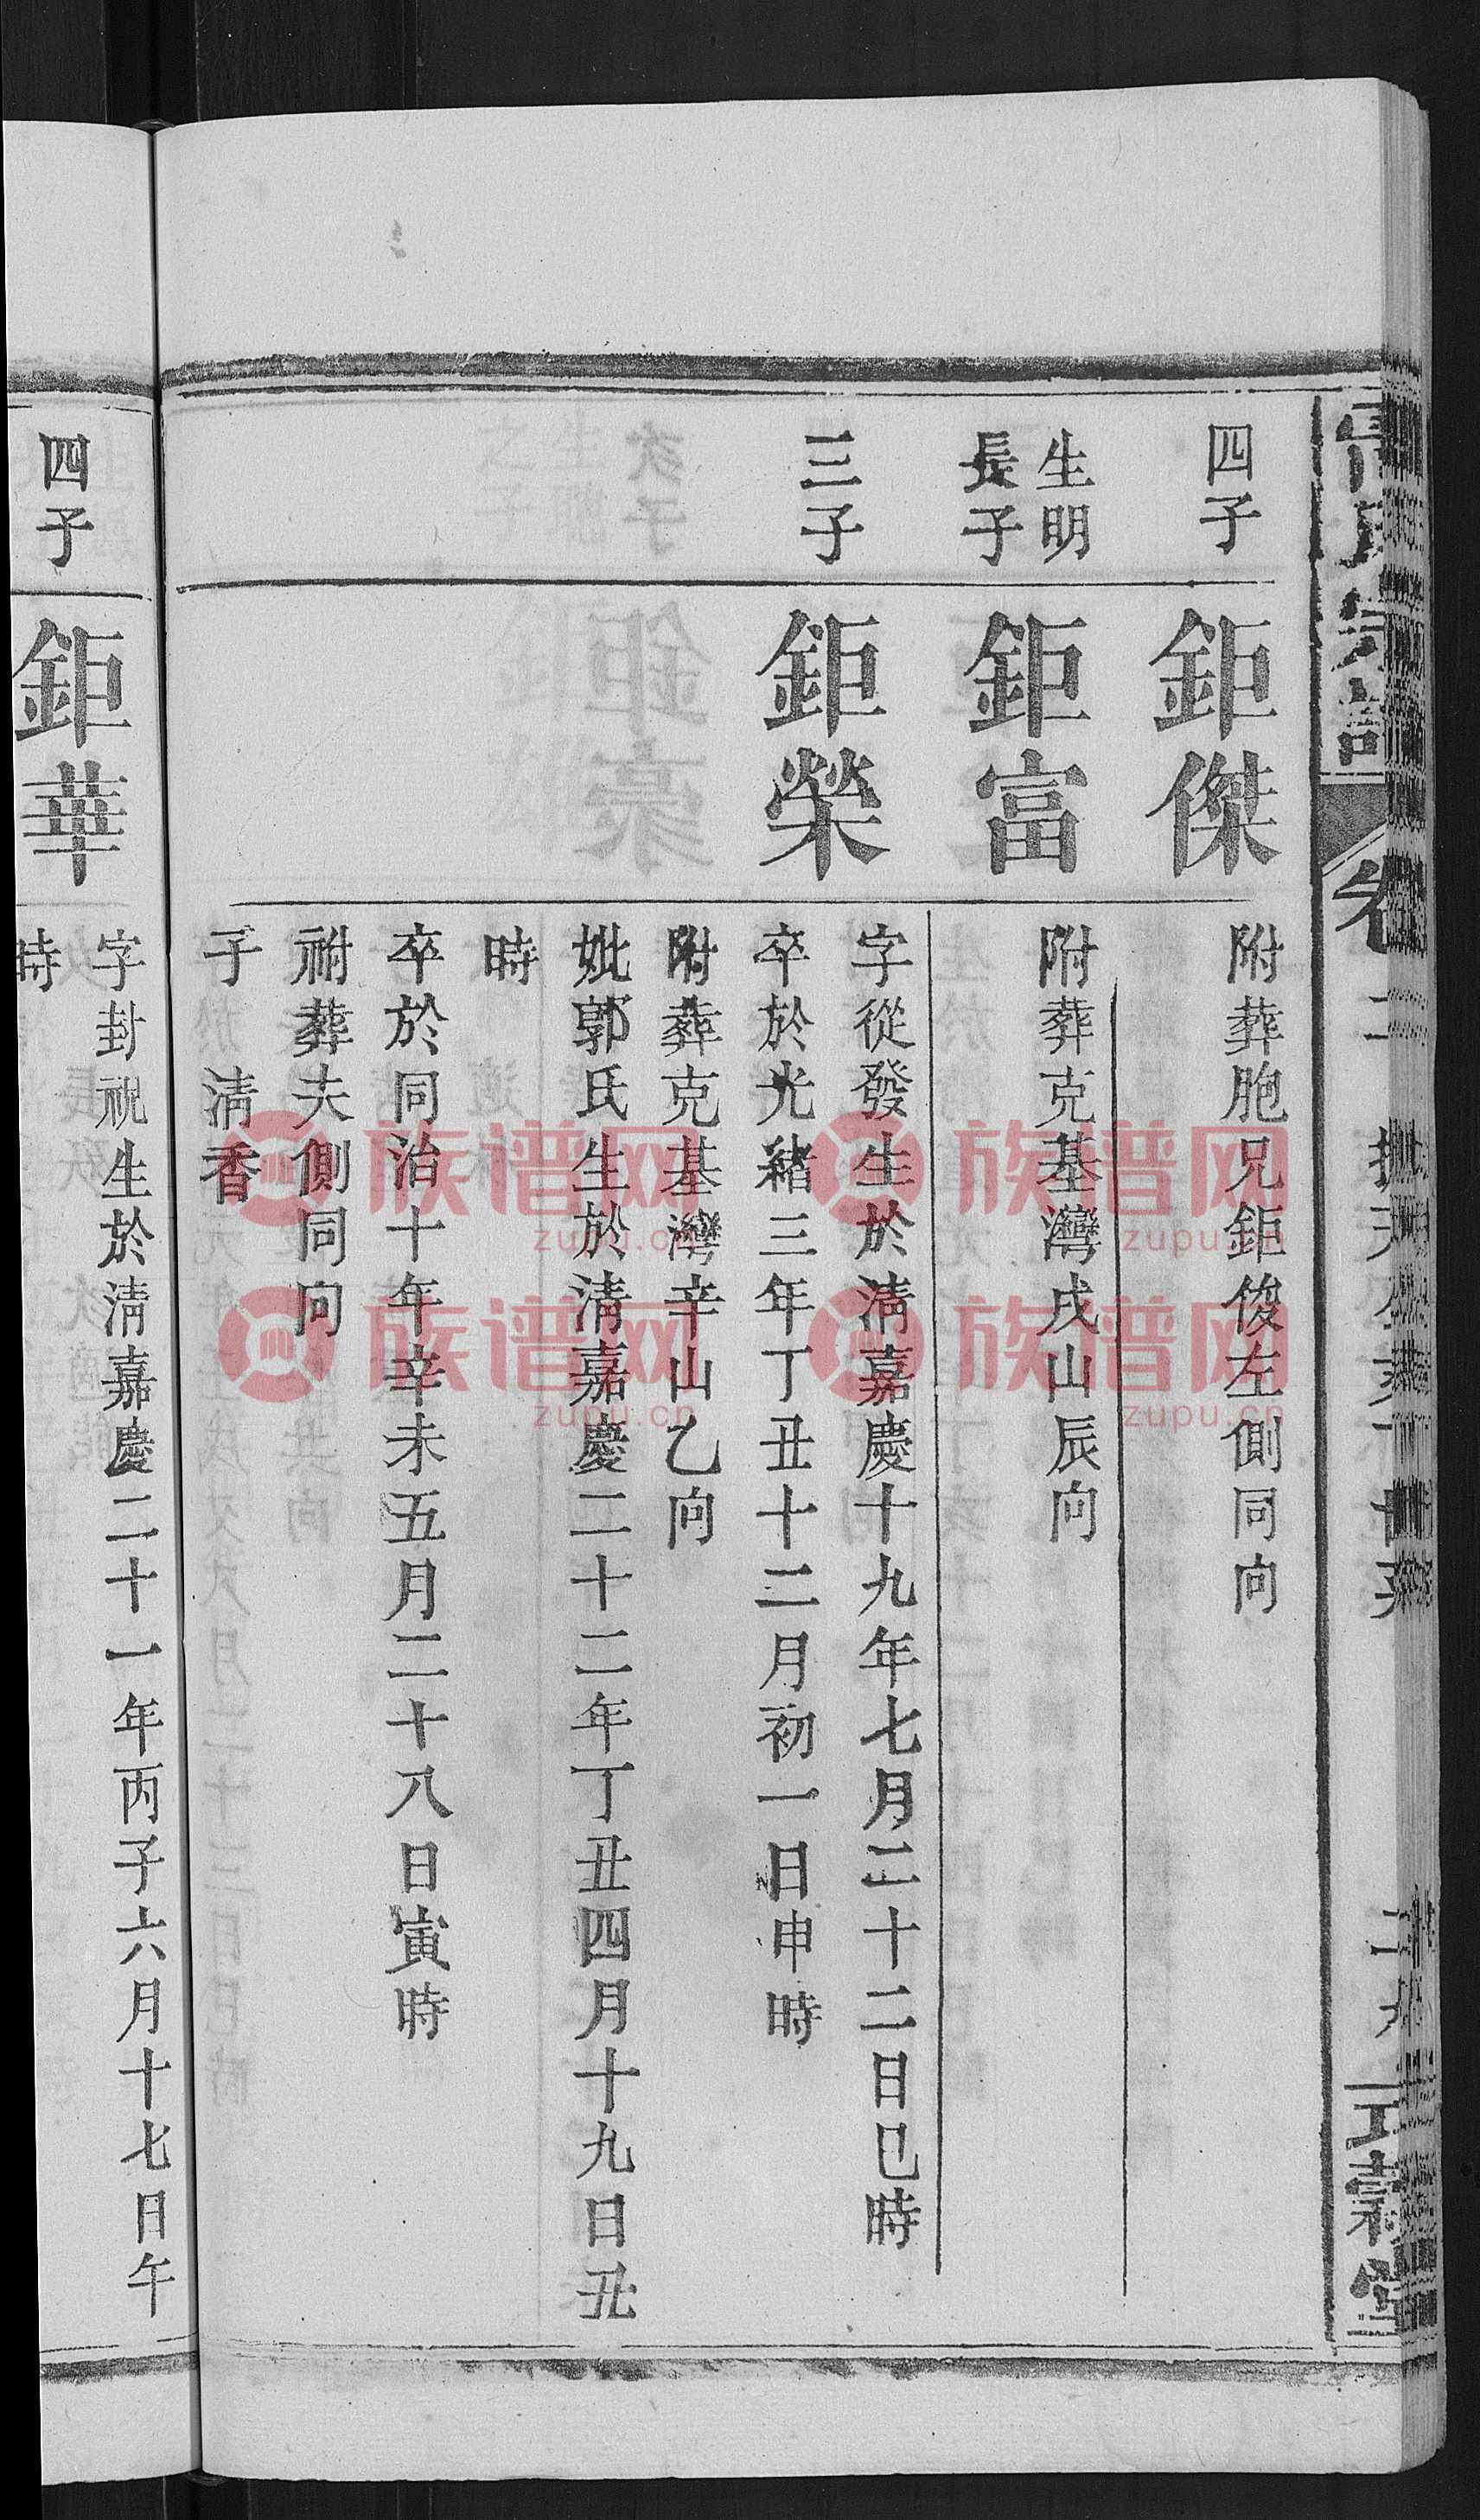 四子
鉅傑
附葬胞兄鉅俊左側同向
生明
長子
鉅富
附葬克基灣戌山辰向
三子
鉅榮
字從發生於淸嘉慶十九年七月二十二日巳時
卒於光緒三年丁丑十二月初一日申時
附葬克基灣辛山乙向
妣郭氏生於淸嘉慶二十二年丁丑四月十九日丑
時
卒於同治十年辛未五月二十八日寅時
祔葬夫側同向
子 淸香
四子
鉅華
字封祝生於淸嘉慶二十一年丙子六月十七日午
時
族谱网
zupu.cn
族谱网
zupu.cn
族谱网
zupu.cn
族谱网
zupu.cn